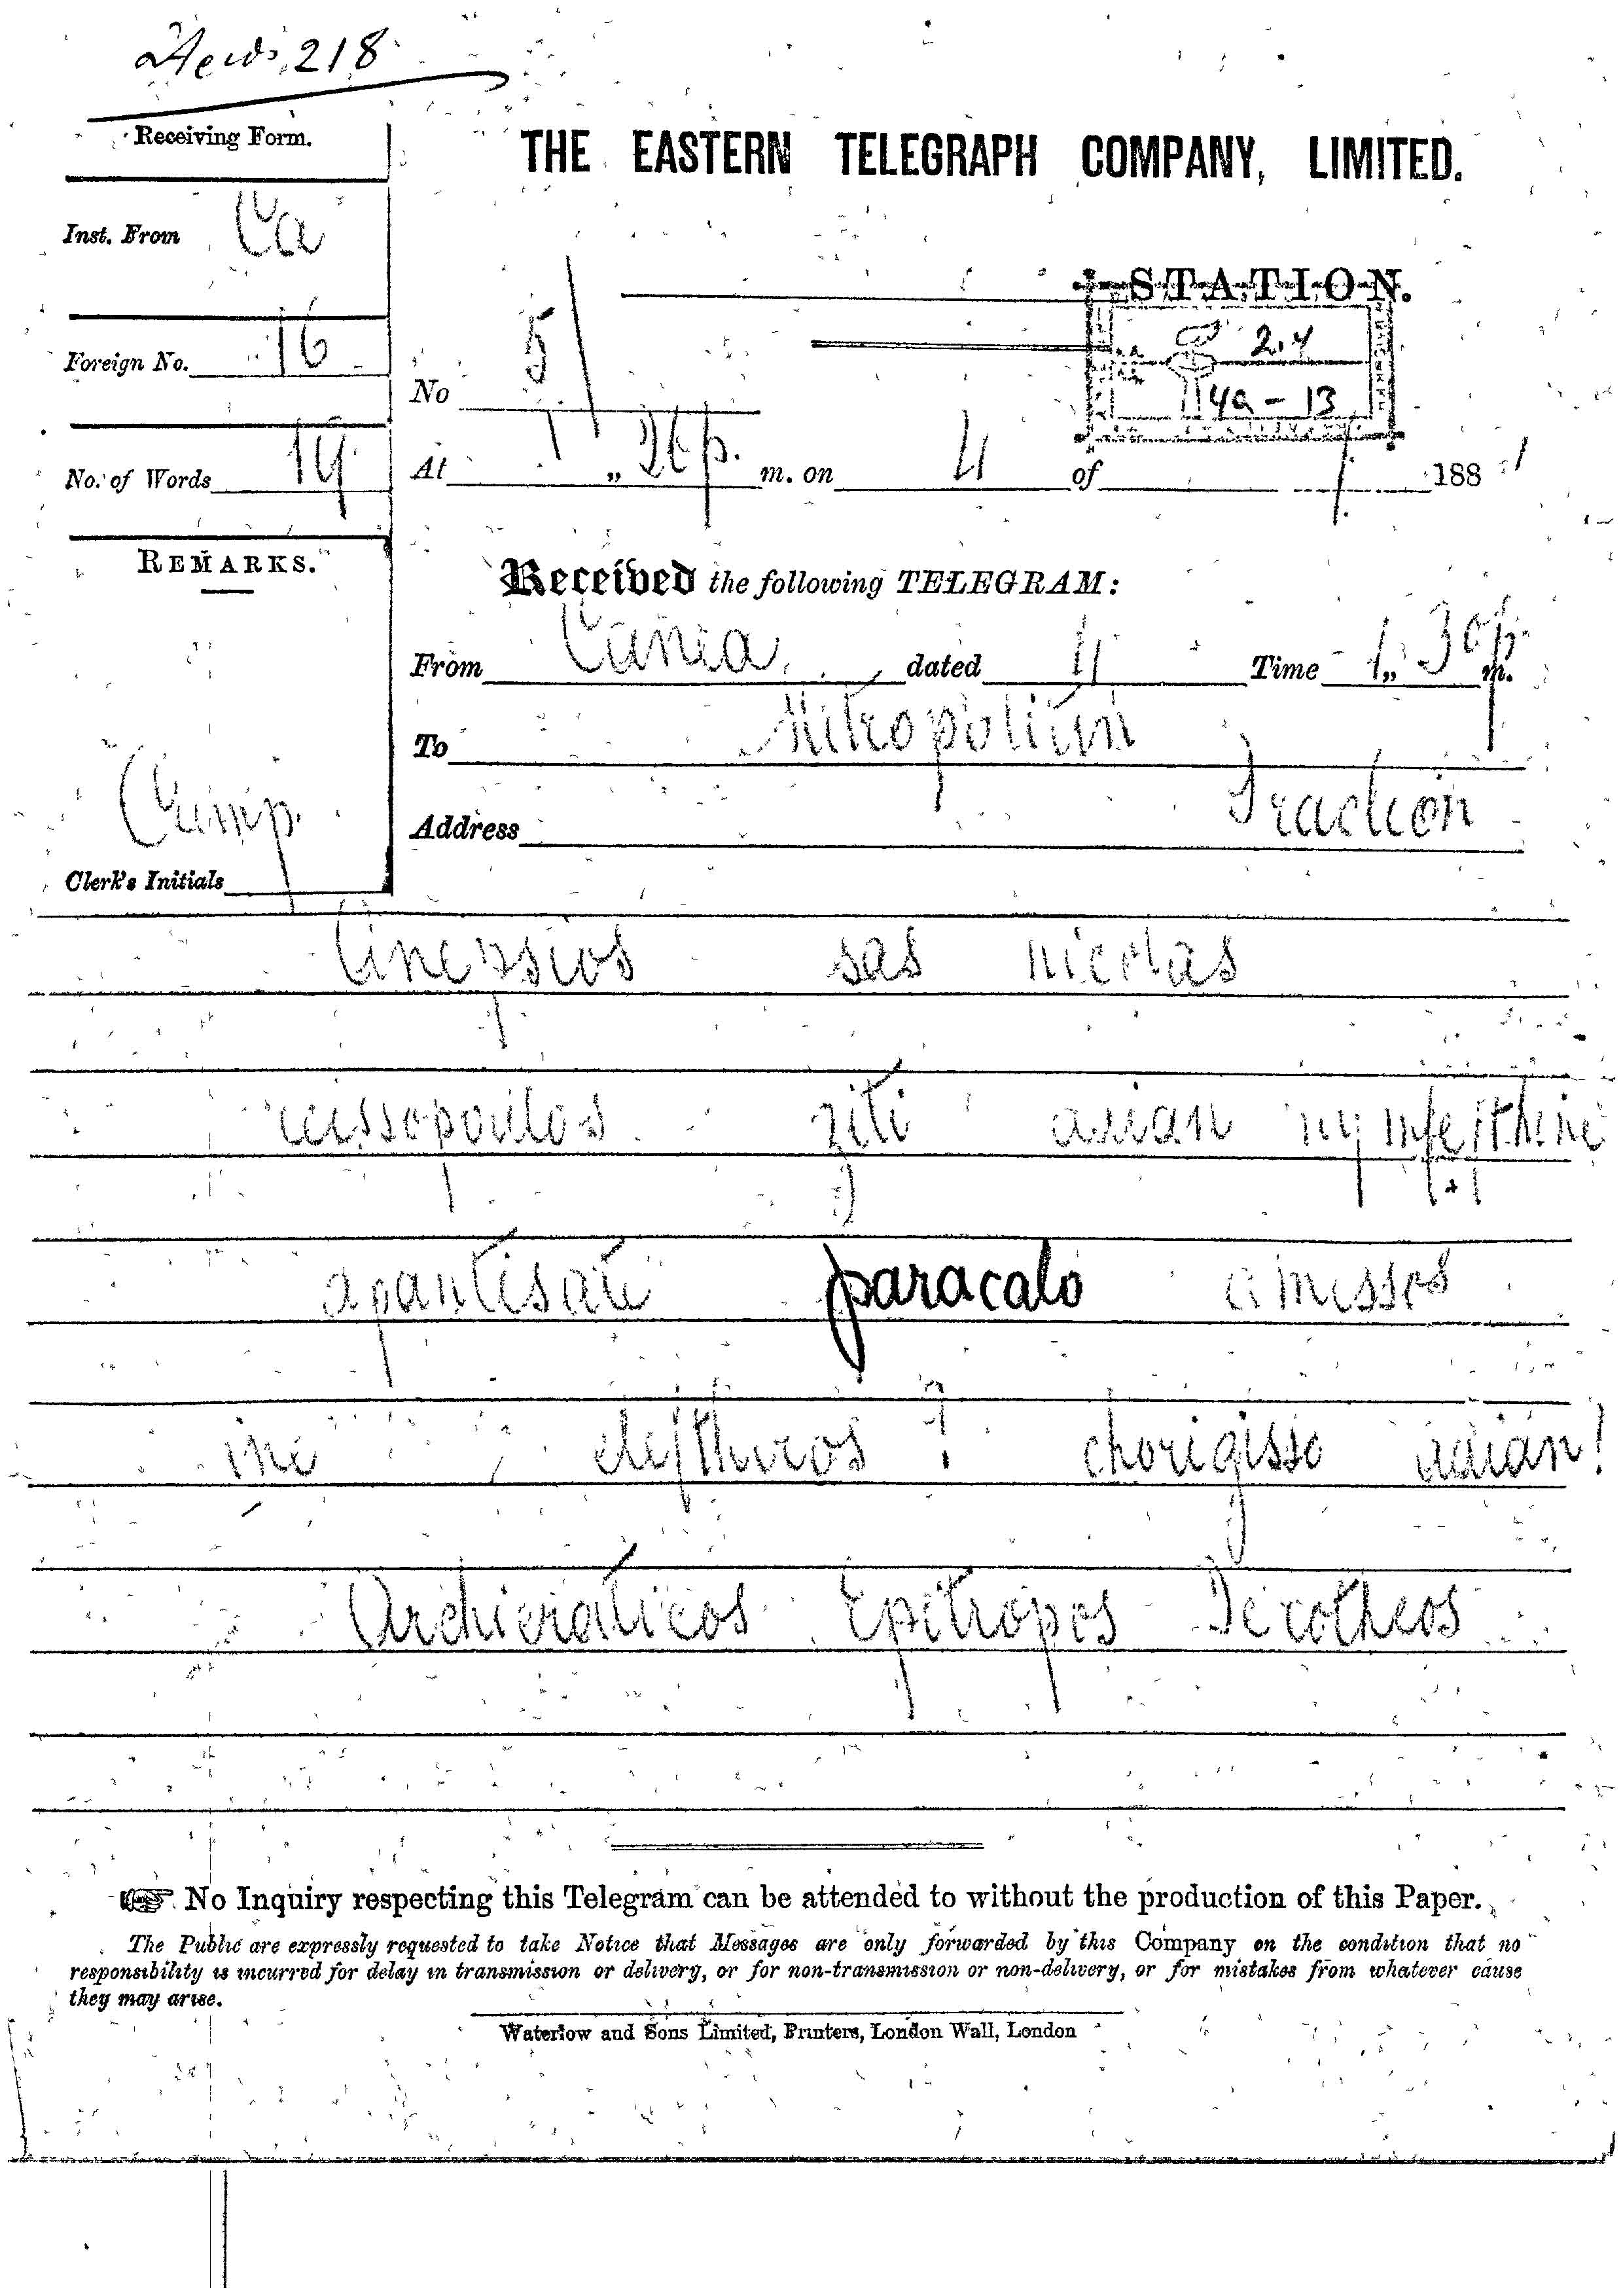 218
Receiving Form.
THE EASTERN TELEGRAPH COMPANY, LIMITED.
Inst. From Ca
STATION.
Foreign No. 16
No 5
24
4a - 13
No. of Words 19
At 1 „ 26 p. m. on 4 of 1 188 1
REMARKS.
Received the following TELEGRAM:
From Canea dated 4 Time 1„ 30 p. m.
To Mitropolitin
Address Iraclion
Clerk's Initials
sas nicolas
ziti adian nymfefthine
apantisate paracalo
ine eleftheros ? chorigisso adian !
Archieraticos Epitropos Dorotheos
No Inquiry respecting this Telegram can be attended to without the production of this Paper.
The Public are expressly requested to take Notice that Messages are only forwarded by this Company on the condition that no
responsibility is incurred for delay in transmission or delivery, or for non-transmission or non-delivery, or for mistakes from whatever cause
they may arise.
Waterlow and Sons Limited, Printers, London Wall, London